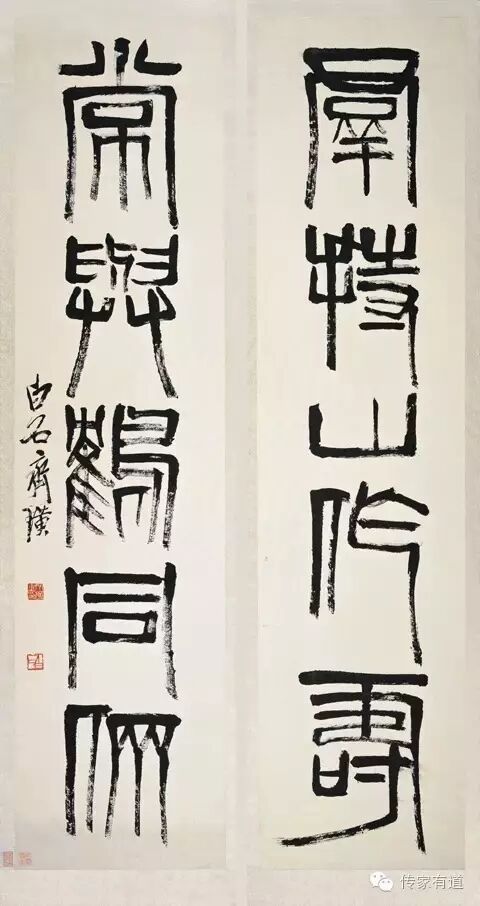 羣持山作壽
常與鶴同倆
白石齊璜
传家有道